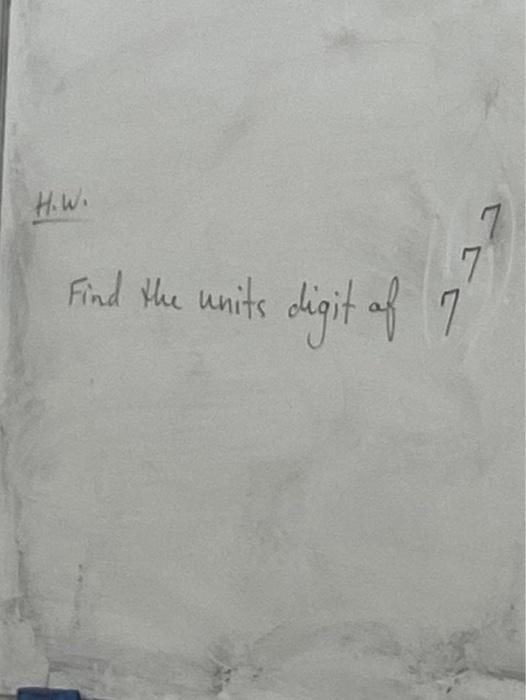 H.W.
Find the units digit of 7^7^7